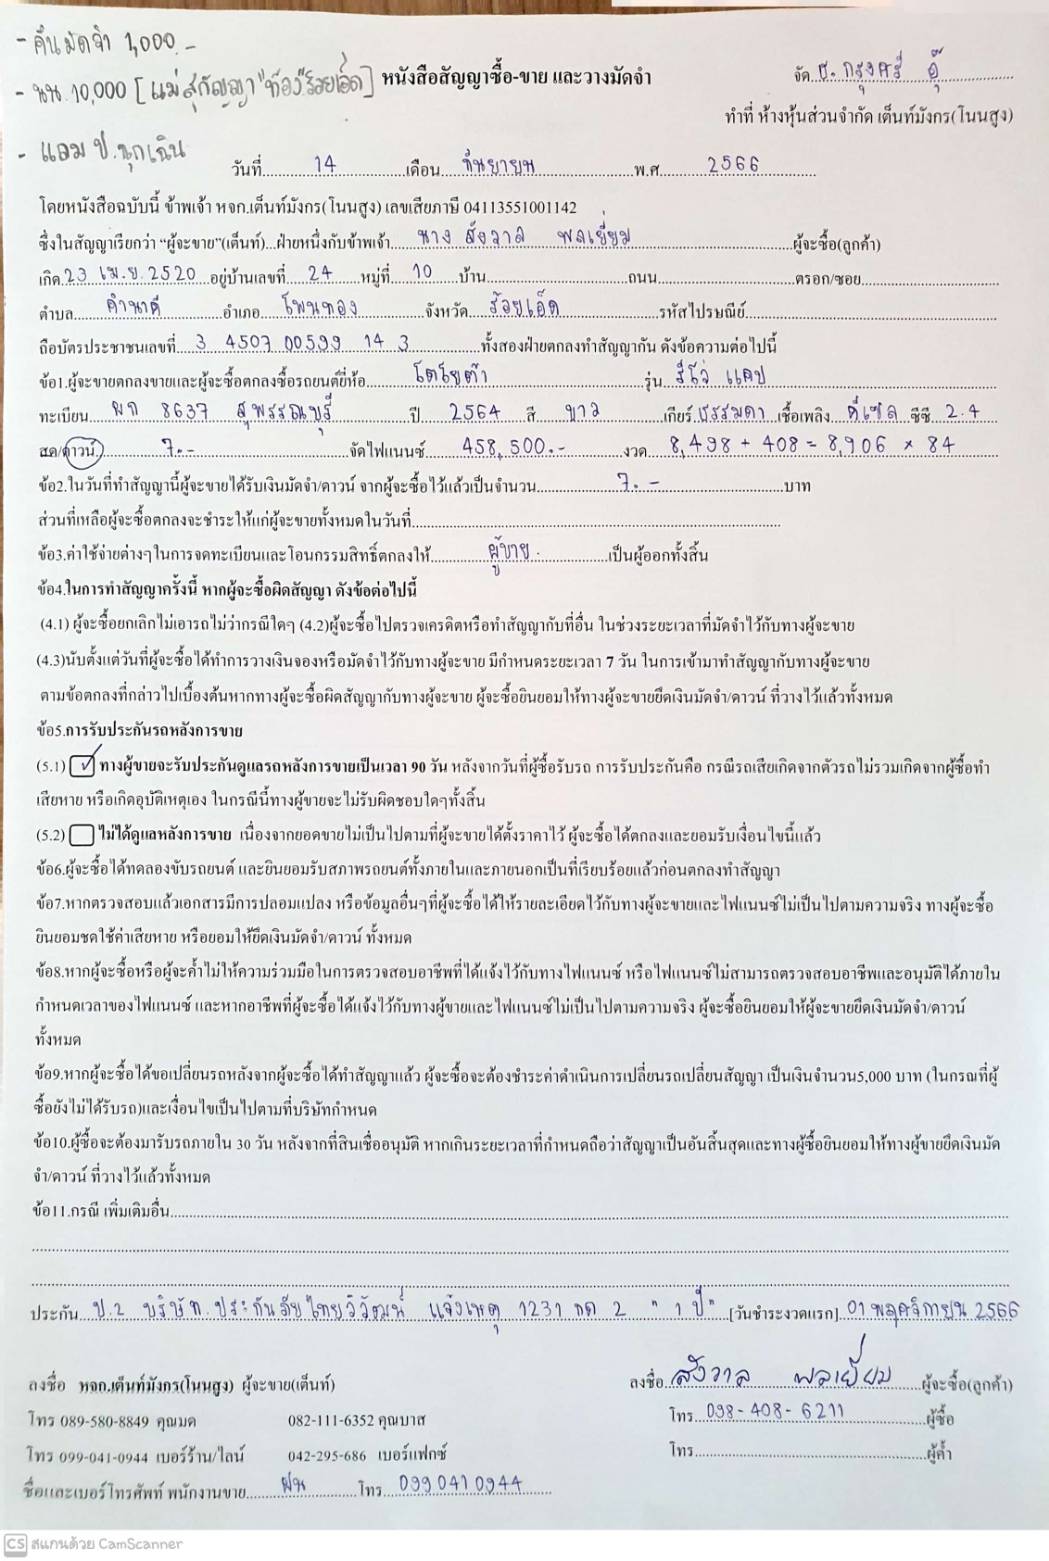 - คืนมัดจำ 1,000.-
- นน.10,000 [แม่สุกัญญา "ท้อง" ร้อยเอ็ด]
- แถม ป.ฉุกเฉิน
หนังสือสัญญาซื้อ-ขาย และวางมัดจำ
จัด ธ.กรุงศรี อุ๊
ทำที่ ห้างหุ้นส่วนจำกัด เต็นท์มังกร(โนนสูง)
วันที่ 14 เดือน กันยายน พ.ศ. 2566
โดยหนังสือฉบับนี้ ข้าพเจ้า หจก.เต็นท์มังกร(โนนสูง) เลขเสียภาษี 04113551001142
ซึ่งในสัญญาเรียกว่า "ผู้จะขาย"(เต็นท์)...ฝ่ายหนึ่งกับข้าพเจ้า นาง สังวาล พลเยี่ยม ผู้จะซื้อ(ลูกค้า)
เกิด 23 เม.ย. 2520 อยู่บ้านเลขที่ 24 หมู่ที่ 10 บ้าน ถนน ตรอก/ซอย
ตำบล คำนาดี อำเภอ โพนทอง จังหวัด ร้อยเอ็ด รหัสไปรษณีย์
ถือบัตรประชาชนเลขที่ 3 4507 00599 14 3 ทั้งสองฝ่ายตกลงทำสัญญากัน ดังข้อความต่อไปนี้
ข้อ1.ผู้จะขายตกลงขายและผู้จะซื้อตกลงซื้อรถยนต์ยี่ห้อ โตโยต้า รุ่น รีโว่ แคป
ทะเบียน ผก 8637 สุพรรณบุรี ปี 2564 สี ขาว เกียร์ ธรรมดา เชื้อเพลิง ดีเซล ซีซี 2.4
สด/ดาวน์ 7.- จัดไฟแนนซ์ 458,500.- งวด 8,498 + 408 = 8,906 × 84
ข้อ2.ในวันที่ทำสัญญานี้ผู้จะขายได้รับเงินมัดจำ/ดาวน์ จากผู้จะซื้อไว้แล้วเป็นจำนวน 7.- บาท
ส่วนที่เหลือผู้จะซื้อตกลงจะชำระให้แก่ผู้จะขายทั้งหมดในวันที่
ข้อ3.ค่าใช้จ่ายต่างๆในการจดทะเบียนและโอนกรรมสิทธิ์ตกลงให้ ผู้ขาย. เป็นผู้ออกทั้งสิ้น
ข้อ4.ในการทำสัญญาครั้งนี้ หากผู้จะซื้อผิดสัญญา ดังข้อต่อไปนี้
(4.1) ผู้จะซื้อยกเลิกไม่เอารถไม่ว่ากรณีใดๆ (4.2)ผู้จะซื้อไปตรวจเครดิตหรือทำสัญญากับที่อื่น ในช่วงระยะเวลาที่มัดจำไว้กับทางผู้จะขาย
(4.3)นับตั้งแต่วันที่ผู้จะซื้อได้ทำการวางเงินจองหรือมัดจำไว้กับทางผู้จะขาย มีกำหนดระยะเวลา 7 วัน ในการเข้ามาทำสัญญากับทางผู้จะขาย
ตามข้อตกลงที่กล่าวไปเบื้องต้นหากทางผู้จะซื้อผิดสัญญากับทางผู้จะขาย ผู้จะซื้อยินยอมให้ทางผู้จะขายยึดเงินมัดจำ/ดาวน์ ที่วางไว้แล้วทั้งหมด
ข้อ5.การรับประกันรถหลังการขาย
(5.1) ✓ ทางผู้ขายจะรับประกันดูแลรถหลังการขายเป็นเวลา 90 วัน หลังจากวันที่ผู้ซื้อรับรถ การรับประกันคือ กรณีรถเสียเกิดจากตัวรถไม่รวมเกิดจากผู้ซื้อทำ
เสียหาย หรือเกิดอุบัติเหตุเอง ในกรณีนี้ทางผู้ขายจะไม่รับผิดชอบใดๆทั้งสิ้น
(5.2) ไม่ได้ดูแลหลังการขาย เนื่องจากยอดขายไม่เป็นไปตามที่ผู้จะขายได้ตั้งราคาไว้ ผู้จะซื้อได้ตกลงและยอมรับเงื่อนไขนี้แล้ว
ข้อ6.ผู้จะซื้อได้ทดลองขับรถยนต์ และยินยอมรับสภาพรถยนต์ทั้งภายในและภายนอกเป็นที่เรียบร้อยแล้วก่อนตกลงทำสัญญา
ข้อ7.หากตรวจสอบแล้วเอกสารมีการปลอมแปลง หรือข้อมูลอื่นๆที่ผู้จะซื้อได้ให้รายละเอียดไว้กับทางผู้จะขายและไฟแนนซ์ไม่เป็นไปตามความจริง ทางผู้จะซื้อ
ยินยอมชดใช้ค่าเสียหาย หรือยอมให้ยึดเงินมัดจำ/ดาวน์ ทั้งหมด
ข้อ8.หากผู้จะซื้อหรือผู้จะค้ำไม่ให้ความร่วมมือในการตรวจสอบอาชีพที่ได้แจ้งไว้กับทางไฟแนนซ์ หรือไฟแนนซ์ไม่สามารถตรวจสอบอาชีพและอนุมัติได้ภายใน
กำหนดเวลาของไฟแนนซ์ และหากอาชีพที่ผู้จะซื้อได้แจ้งไว้กับทางผู้ขายและไฟแนนซ์ไม่เป็นไปตามความจริง ผู้จะซื้อยินยอมให้ผู้จะขายยึดเงินมัดจำ/ดาวน์
ทั้งหมด
ข้อ9.หากผู้จะซื้อได้ขอเปลี่ยนรถหลังจากผู้จะซื้อได้ทำสัญญาแล้ว ผู้จะซื้อจะต้องชำระค่าดำเนินการเปลี่ยนรถเปลี่ยนสัญญา เป็นเงินจำนวน5,000 บาท (ในกรณที่ผู้
ซื้อยังไม่ได้รับรถ)และเงื่อนไขเป็นไปตามที่บริษัทกำหนด
ข้อ10.ผู้ซื้อจะต้องมารับรถภายใน 30 วัน หลังจากที่สินเชื่ออนุมัติ หากเกินระยะเวลาที่กำหนดถือว่าสัญญาเป็นอันสิ้นสุดและทางผู้ซื้อยินยอมให้ทางผู้ขายยึดเงินมัด
จำ/ดาวน์ ที่วางไว้แล้วทั้งหมด
ข้อ11.กรณี เพิ่มเติมอื่น
ประกัน ป.2 บริษัท.ประกันภัยไทยวิวัฒน์ แจ้งเหตุ 1231 กด 2 "1 ปี" [วันชำระงวดแรก] 01 พฤศจิกายน 2566
ลงชื่อ หจก.เต็นท์มังกร(โนนสูง) ผู้จะขาย(เต็นท์)
ลงชื่อ สังวาล พลเยี่ยม ผู้จะซื้อ(ลูกค้า)
โทร 089-580-8849 คุณมด 082-111-6352 คุณบาส
โทร 098-408-6211 ผู้ซื้อ
โทร 099-041-0944 เบอร์ร้าน/ไลน์ 042-295-686 เบอร์แฟกซ์
โทร ผู้ค้ำ
ชื่อและเบอร์โทรศัพท์ พนักงานขาย ฝน โทร 099 041 0944
CS สแกนด้วย CamScanner